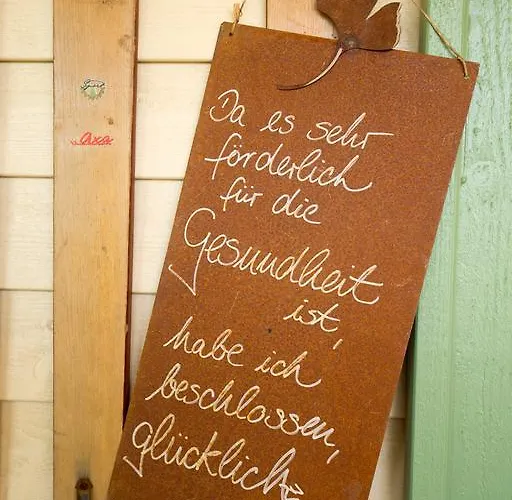 Da es sehr
förderlich
für die
Gesundheit
ist,
habe ich
beschlossen,
glücklich